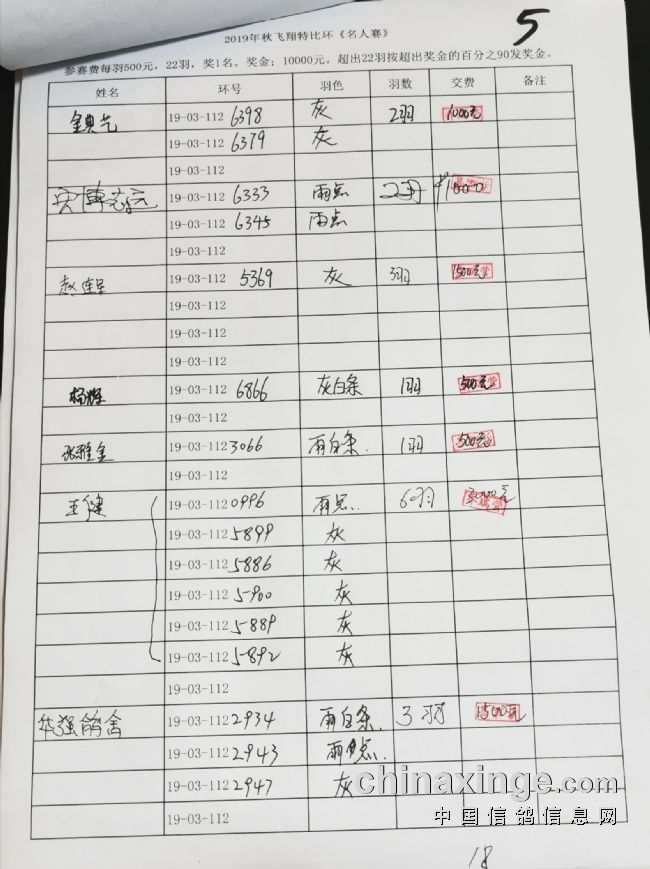 5
2019年秋飞翔特比环《名人赛》
参赛费每羽500元，22羽，奖1名。奖金：10000元，超出22羽按超出奖金的百分之90发奖金。
姓名 环号 羽色 羽数 交费 备注
19-03-112 6398 灰 2羽 1000元
19-03-112 6379 灰
19-03-112
19-03-112 6333 雨点 2羽 ¥1000
19-03-112 6345 雨点
19-03-112
19-03-112 5369 灰 3羽 1500元
19-03-112
19-03-112
19-03-112
杨辉 19-03-112 6866 灰白条 1羽 500元
19-03-112
张雅金 19-03-112 3066 雨白条. 1羽 500元
19-03-112
王健 19-03-112 0996 雨点. 6羽 3000元
19-03-112 5899 灰
19-03-112 5886 灰
19-03-112 5900 灰
19-03-112 5889 灰
19-03-112 5892 灰
19-03-112
华强鸽舍 19-03-112 2934 雨白条. 3羽 1500元
19-03-112 2943
19-03-112 2947 灰
19-03-112
chinaxinge.com
中国信鸽信息网
18